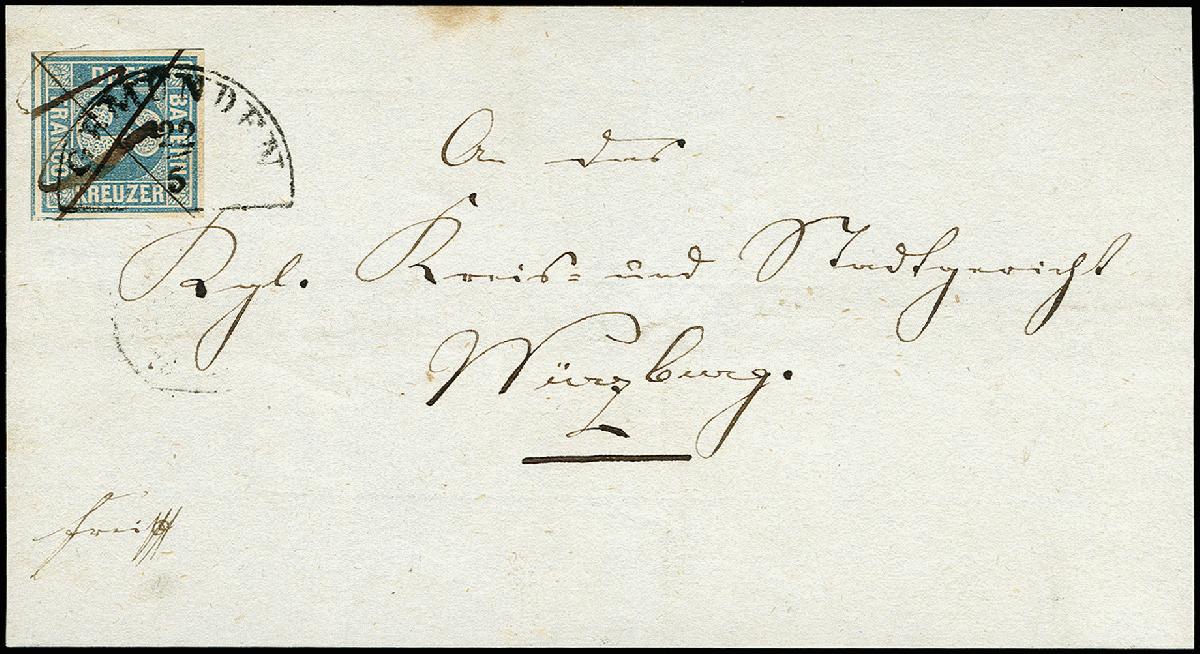 DREI
FRANCO
BAYERN
KREUZER
3
GEMÜNDEN
22
5
An das
Kgl. Kreis- und Stadtgericht
Würzburg.
frei